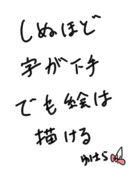 しぬほど
字が下手
でも絵は
描ける